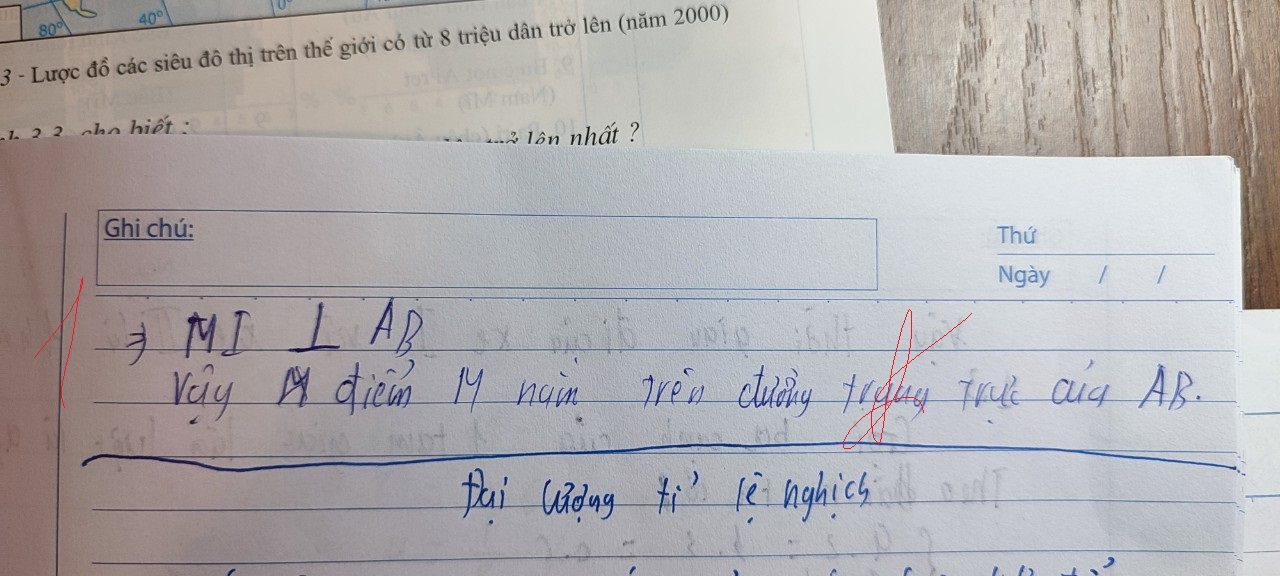 80° 40° 0°
3 - Lược đồ các siêu đô thị trên thế giới có từ 8 triệu dân trở lên (năm 2000)
3.3, cho biết :
nhất ?
Ghi chú:
Thứ
Ngày / /
⇒ MI ⊥ AB
Vậy điểm M nằm trên đường trung trực của AB.
Đại lượng tỉ lệ nghịch